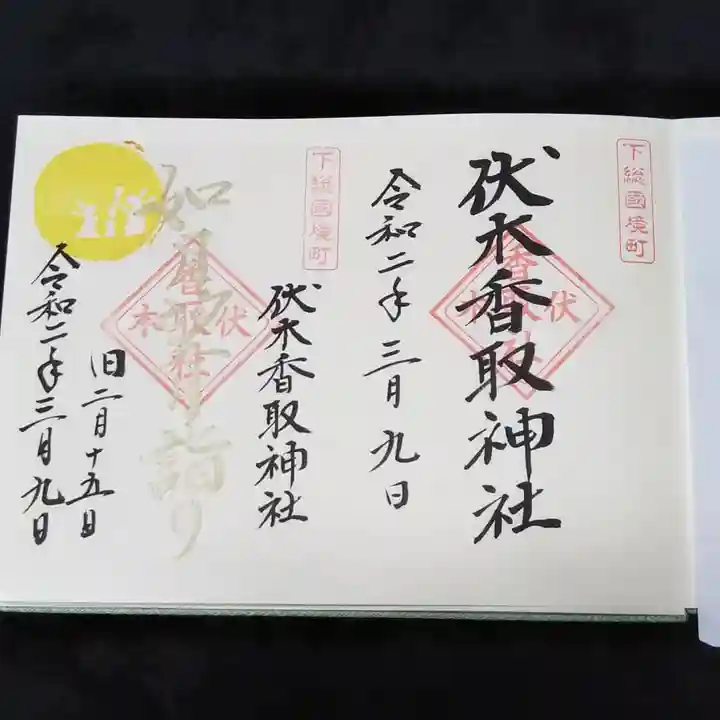 下総國境町
伏木香取神社
令和二年三月九日
下総國境町
伏木香取神社
如月詣り
旧二月十五日
令和二年三月九日